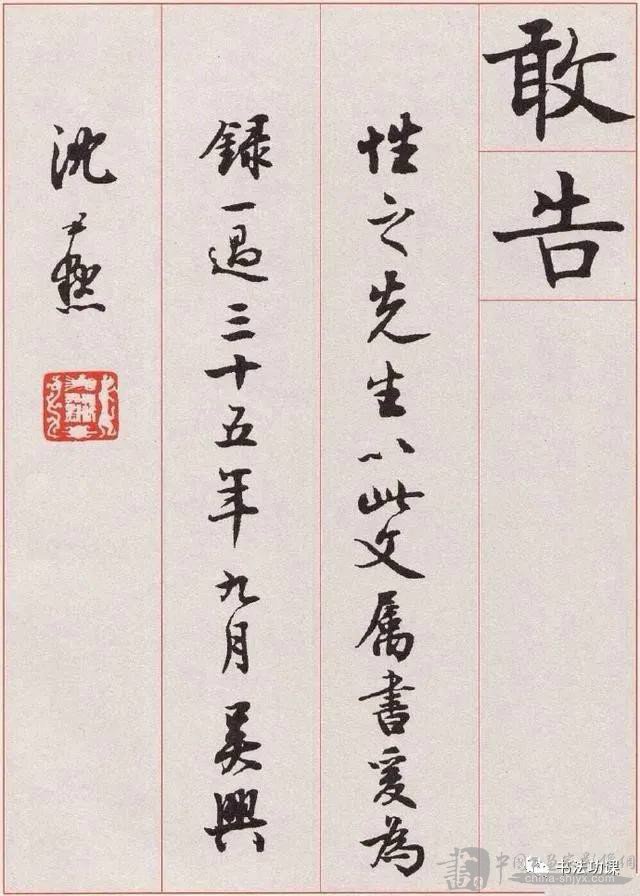 敢告
性之先生以此文属書爰為
録一過三十五年九月吴興
沈尹默
書法功课
china-shjyx.com